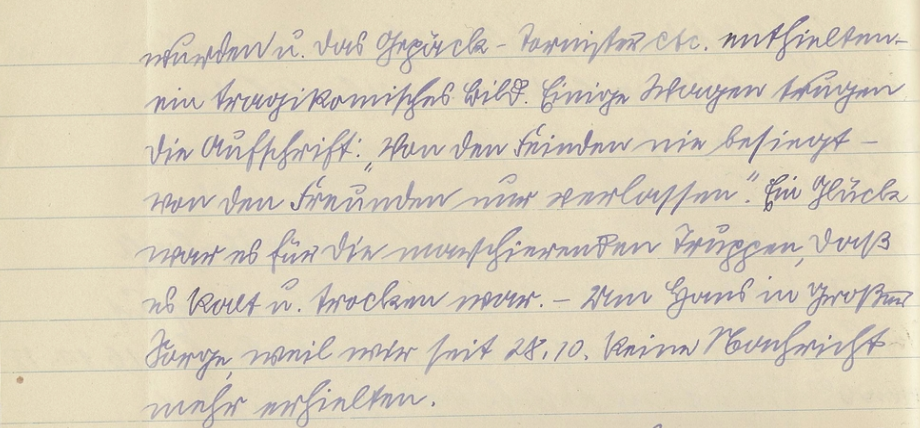 wurden u. das Gepäck - Tornister etc. enthielten -
ein tragikomisches Bild. Einige Wagen trugen
die Aufschrift: „Von den Feinden nie besiegt -
von den Freunden nur verlassen". Ein Glück
war es für die marschierenden Truppen, daß
es kalt u. trocken war. - Um Hans in großer
Sorge, weil wir seit 28.10. keine Nachricht
mehr erhielten.